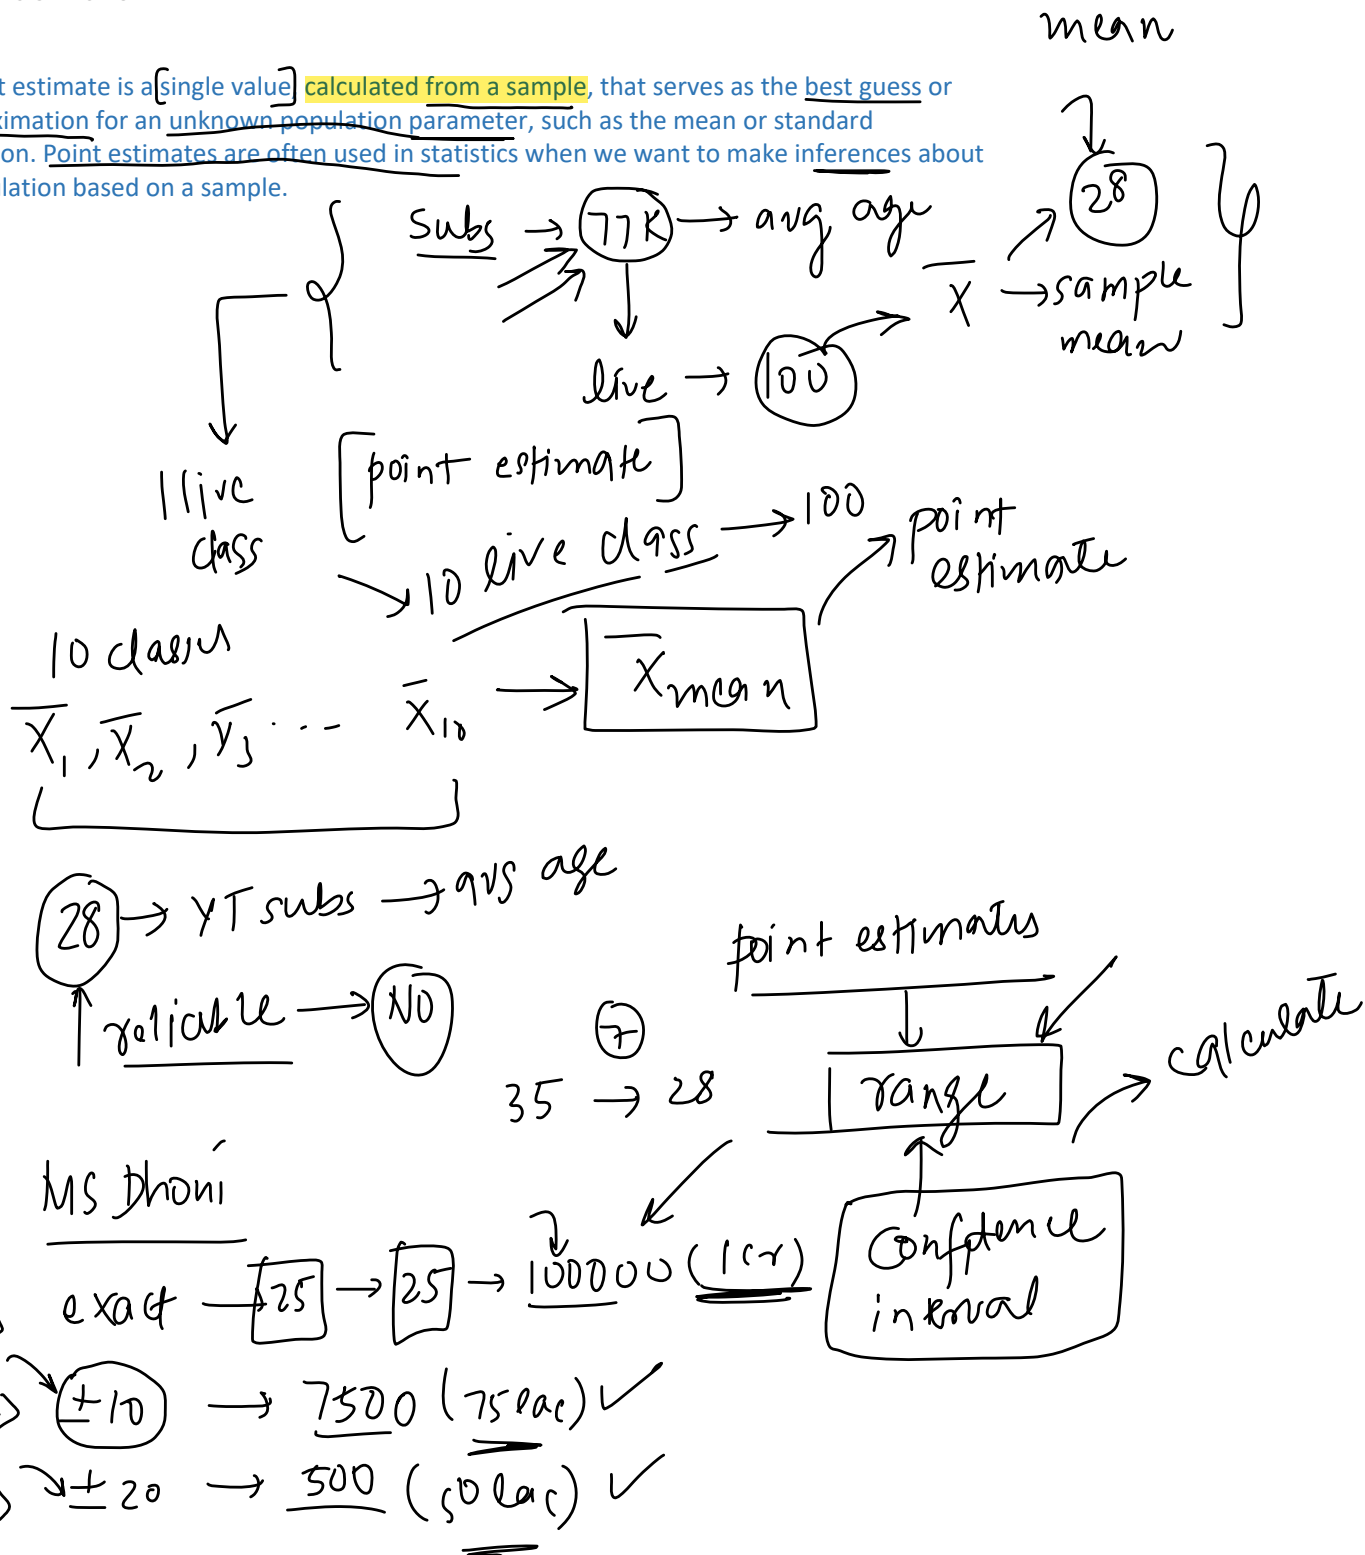 mean
t estimate is a [single value] calculated from a sample, that serves as the best guess or
ximation for an unknown population parameter, such as the mean or standard
on. Point estimates are often used in statistics when we want to make inferences about
lation based on a sample.
28
subs → 77K → avg age
x̄ → sample
mean
live → 100
[point estimate]
1 live
class
10 live class → 100
point
estimate
10 classes
x̄1, x̄2, x̄3 ... x̄10 → x̄mean
28 → YT subs → avg age
point estimates
reliable → NO
7
35 → 28
range
calculate
MS Dhoni
exact → 25 → 25 → 100000 (1cr)
Confidence
interval
±10 → 7500 (75 lac) ✓
±20 → 500 (50 lac) ✓